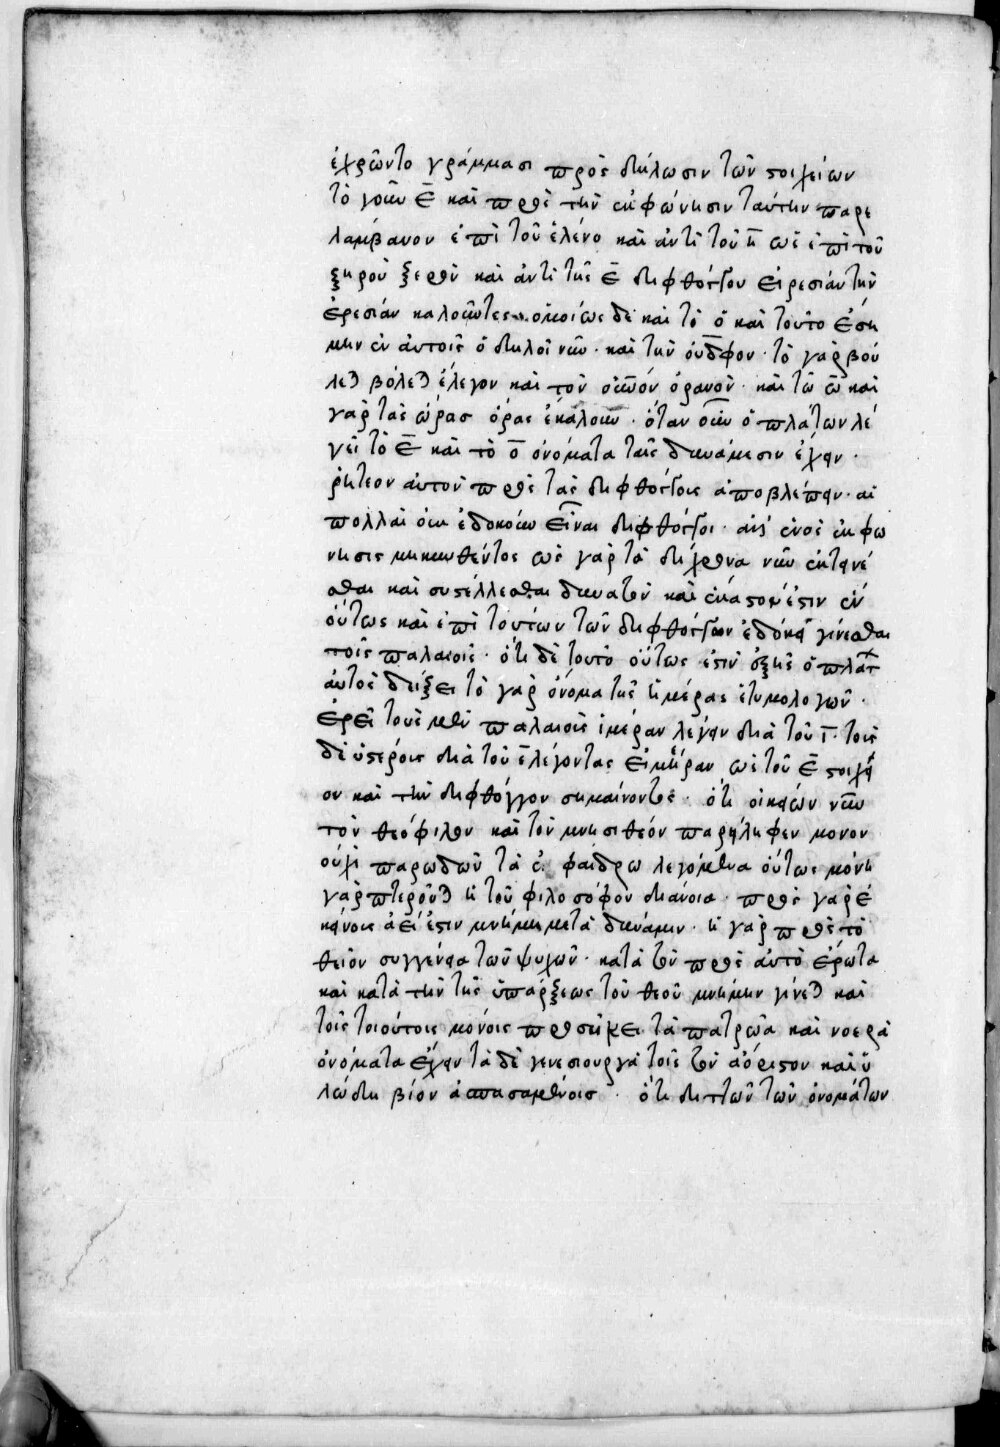 ἐχρῶντο γράμμασι πρὸς δήλωσιν τῶν στοιχείων
τὸ γοῦν ε̄ καὶ πρὸς τὴν ἐκφώνησιν ταύτην παρε
λάμβανον ἐπὶ τοῦ ἑλένο καὶ ἀντὶ τοῦ η̄ ὡς ἐπὶ τοῦ
ξηροῦ ξερὸν καὶ ἀντὶ τῆς ε̄ διφθόγγου εἰρεσιάν τὴν
ἐρεσιάν καλοῦντες ὁμοίως δὲ καὶ τὸ ὀ καὶ τοῦτο ἐσή
μην ἐν αὐτοῖς ὁ δηλοῖ νῦν · καὶ τὴν οὐ δίφον · τὸ γὰρ βού
λεται βόλεται ἔλεγον καὶ τὸν οὐνόν ὀρανόν · καὶ τῶ ω̄ καὶ
γὰρ τὰς ὥρασ ὅρας ἐκάλουν · ὅταν οὖν ὁ πλάτων λέ
γει τὸ ε̄ καὶ τὸ ο̄ ὀνόματα ταῖς δυνάμεσιν ἔχειν ·
ῥητεον αὐτὸν πρὸς τὰς διφθόγγοις ἀποβλέπειν · αἱ
πολλαὶ οὖν ἐδοκοῦν εἶναι διφθόγγοι · ἀλλ' ἑνὸς ἐκφω
νησις μηκυνθέντος ὡς γὰρ τὰ δίχρονα νῦν ἐκτείνε
σθαι καὶ συστέλλεσθαι δυνατὸν καὶ ἕκαστον ἐστιν ἕν
οὕτως καὶ ἐπὶ τούτων τῶν διφθόγγων ἐδόκει γίνεσθαι
τοῖς παλαιοῖς · ὅτι δὲ τοῦτο οὕτως ἐστὶν ἑξῆς ὁ πλάτ
αὐτὸς δείξει τὸ γὰρ ὄνομα τῆς ἡμέρας ἐτυμολογῶν ·
ἐρεῖ τοὺς μὲν παλαιοὶς ἱμέραν λέγειν διὰ τοῦ ῑ · τοὶς
δὲ ὑστέροις διὰ τοῦ ε̄ λέγοντας εἰμέραν ὡς τοῦ ε̄ στοιχεῖ
ον καὶ τὴν διφθόγγον σημαίνοντος · ὅτι οἰκείων νῦν
τὸν θεόφιλον καὶ τὸν μνησιθεόν παρείληφεν μονον
οὐχὶ παρωδῶν τὰ ἐν φαίδρω λεγόμενα οὕτως μόνη
γὰρ πτεροῦται ἡ τοῦ φιλοσόφου διάνοια · πρὸς γὰρ ἐ
κείνοις ἀεί ἐστιν μνήμη μετὰ δυνάμιν · ἡ γὰρ πρὸς τὸ
θεῖον συγγένεια τῶν ψυχῶν · κατὰ τὸν πρὸς αὐτὸ ἔρωτα
καὶ κατὰ τὴν τῆς ὑπάρξεως τοῦ θεοῦ μνήμην γίνεται καὶ
τοῖς τοιούτοις μόνοις προσήκει τὰ πατρῶα καὶ νοερὰ
ὀνόματα ἔχειν τὰ δὲ γενεσιουργὰ τοῖς τὸν ἀόριστον καὶ ὑ
λώδη βίον ἀσπασαμένοισ · ὅτι διττῶν τῶν ὀνομάτων